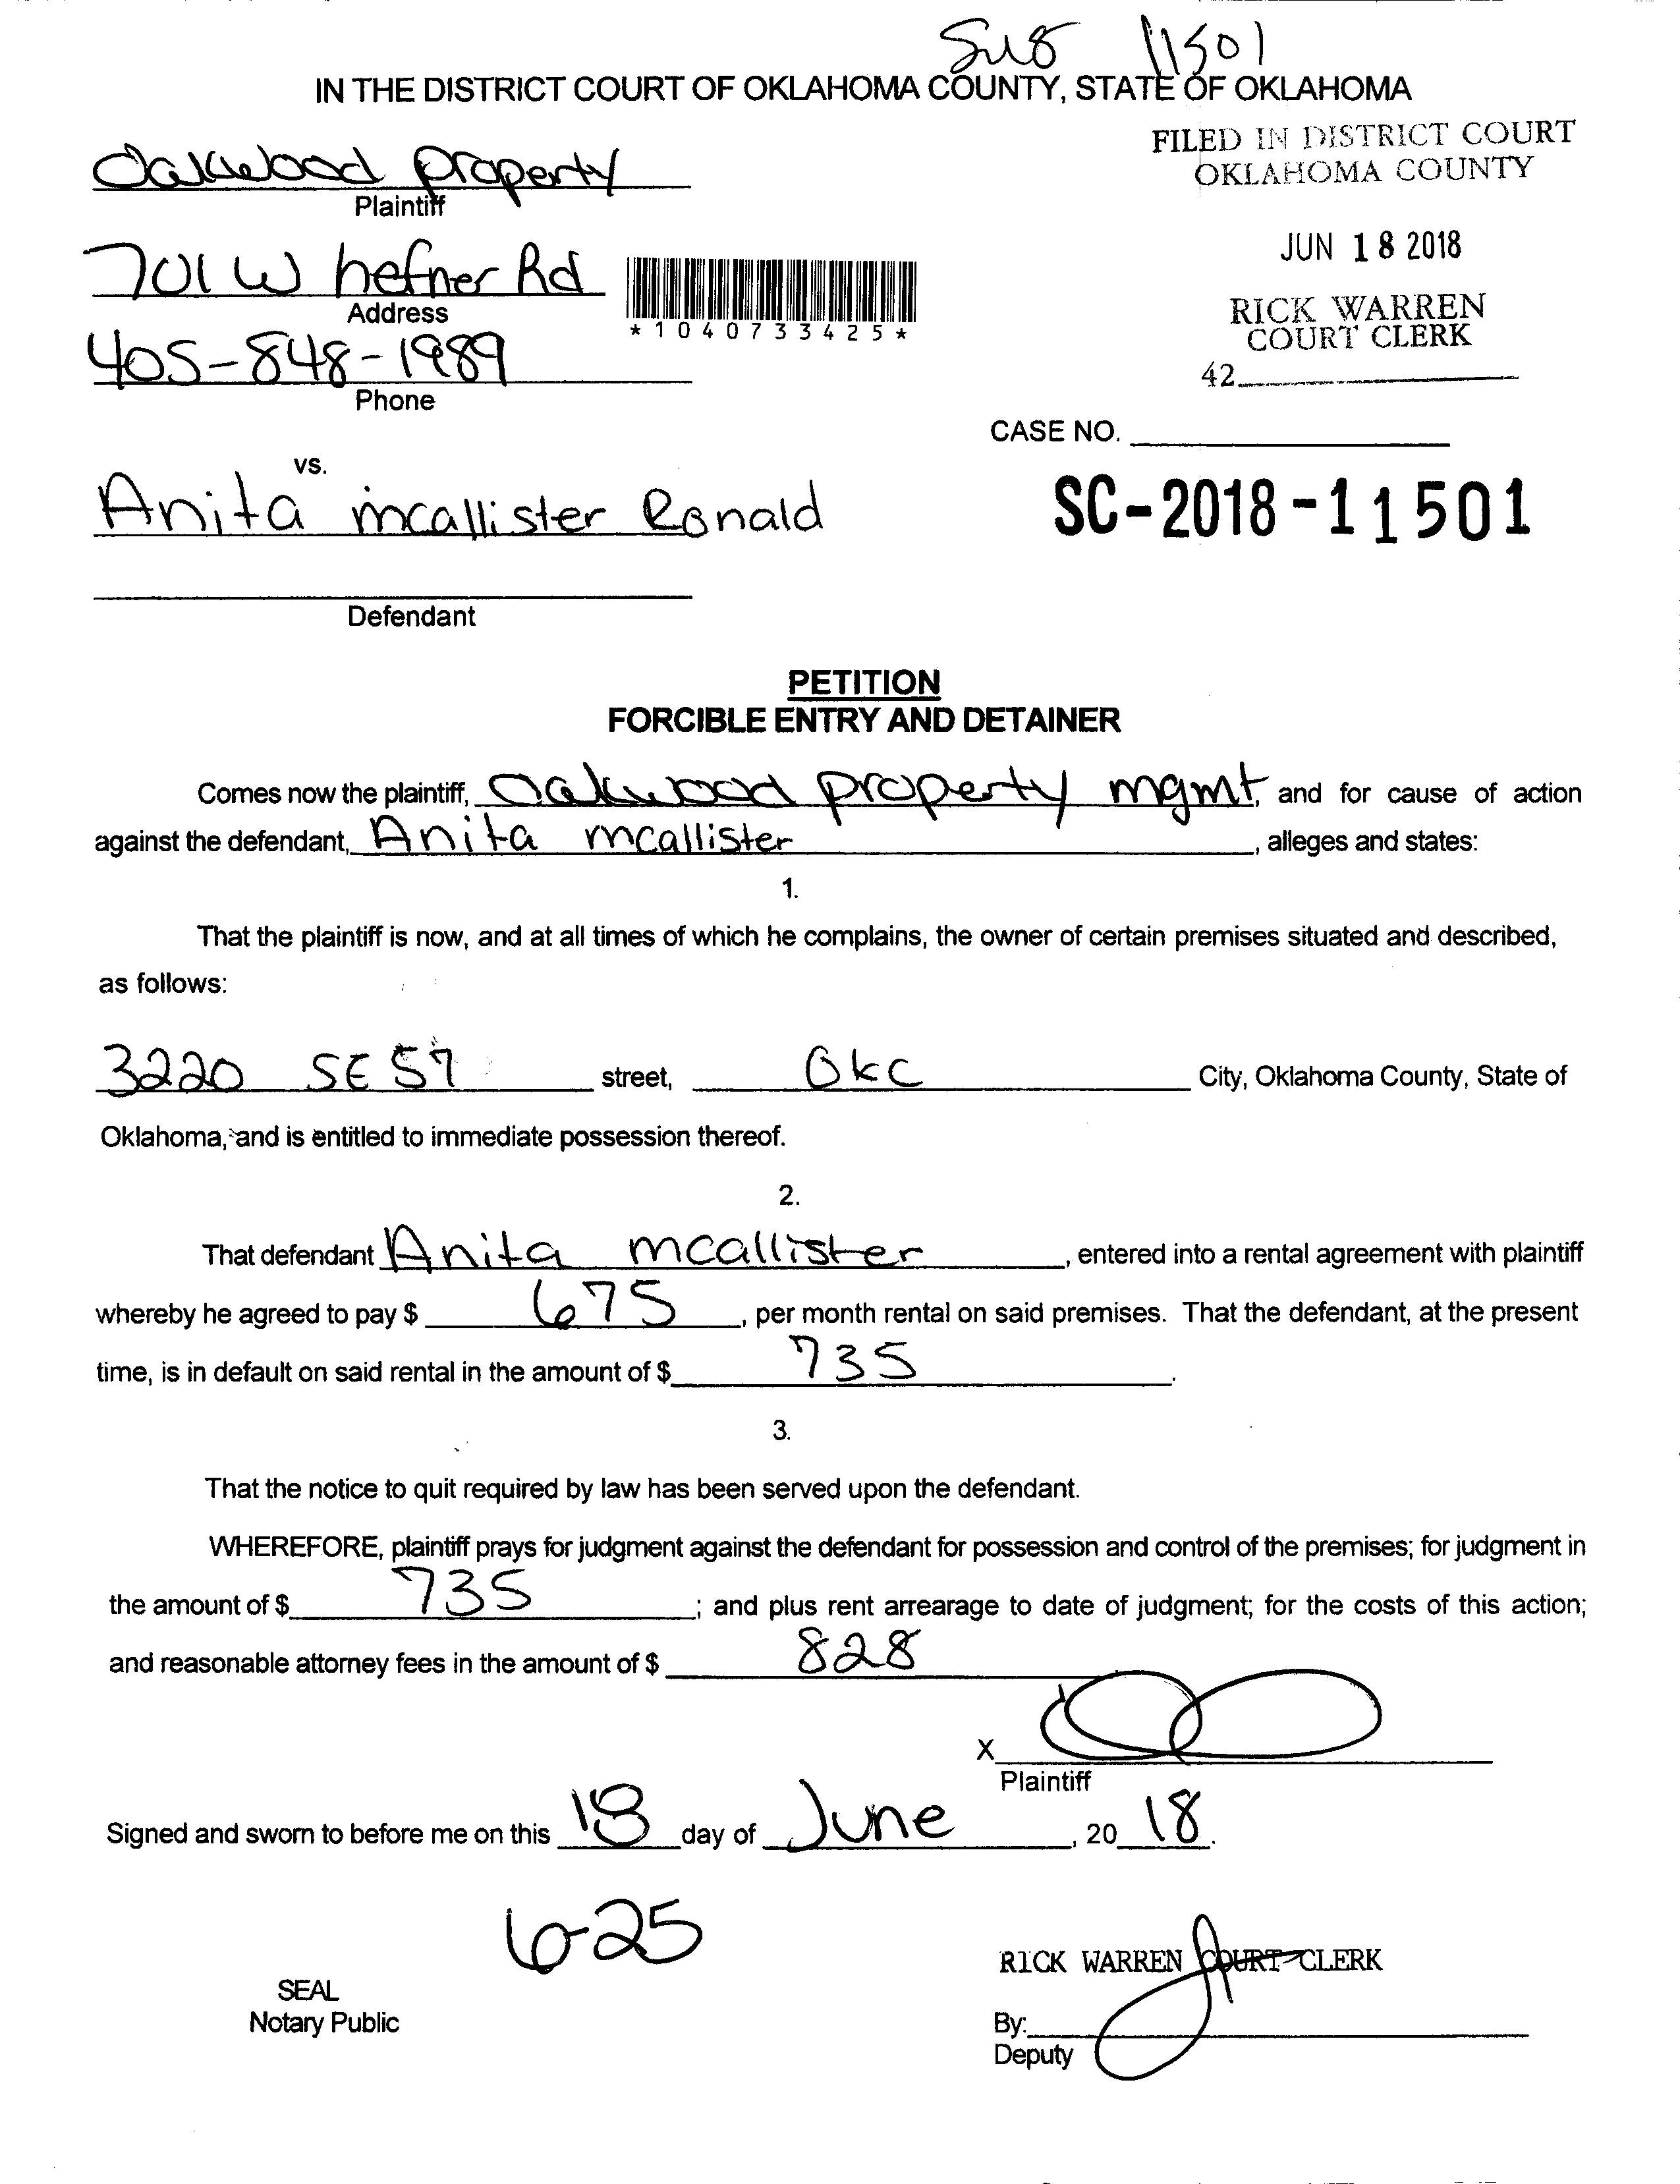 11501
IN THE DISTRICT COURT OF OKLAHOMA COUNTY, STATE OF OKLAHOMA
FILED IN DISTRICT COURT
OKLAHOMA COUNTY
Oakwood property
Plaintiff
JUN 18 2018
701 W hefner Rd
Address
*1040733425*
RICK WARREN
COURT CLERK
405-848-1989
Phone
42
CASE NO.
vs.
Anita mcallister Ronald
SC-2018-11501
Defendant
PETITION
FORCIBLE ENTRY AND DETAINER
Comes now the plaintiff, Oakwood property mgmt, and for cause of action
against the defendant, Anita mcallister, alleges and states:
1.
That the plaintiff is now, and at all times of which he complains, the owner of certain premises situated and described,
as follows:
3220 SE 57 street, OKC City, Oklahoma County, State of
Oklahoma, and is entitled to immediate possession thereof.
2.
That defendant Anita mcallister, entered into a rental agreement with plaintiff
whereby he agreed to pay $ 675, per month rental on said premises. That the defendant, at the present
time, is in default on said rental in the amount of $ 735.
3.
That the notice to quit required by law has been served upon the defendant.
WHEREFORE, plaintiff prays for judgment against the defendant for possession and control of the premises; for judgment in
the amount of $ 735; and plus rent arrearage to date of judgment; for the costs of this action;
and reasonable attorney fees in the amount of $ 828
X
Plaintiff
Signed and sworn to before me on this 18 day of June, 20 18.
6-25
RICK WARREN COURT CLERK
SEAL
Notary Public
By:
Deputy